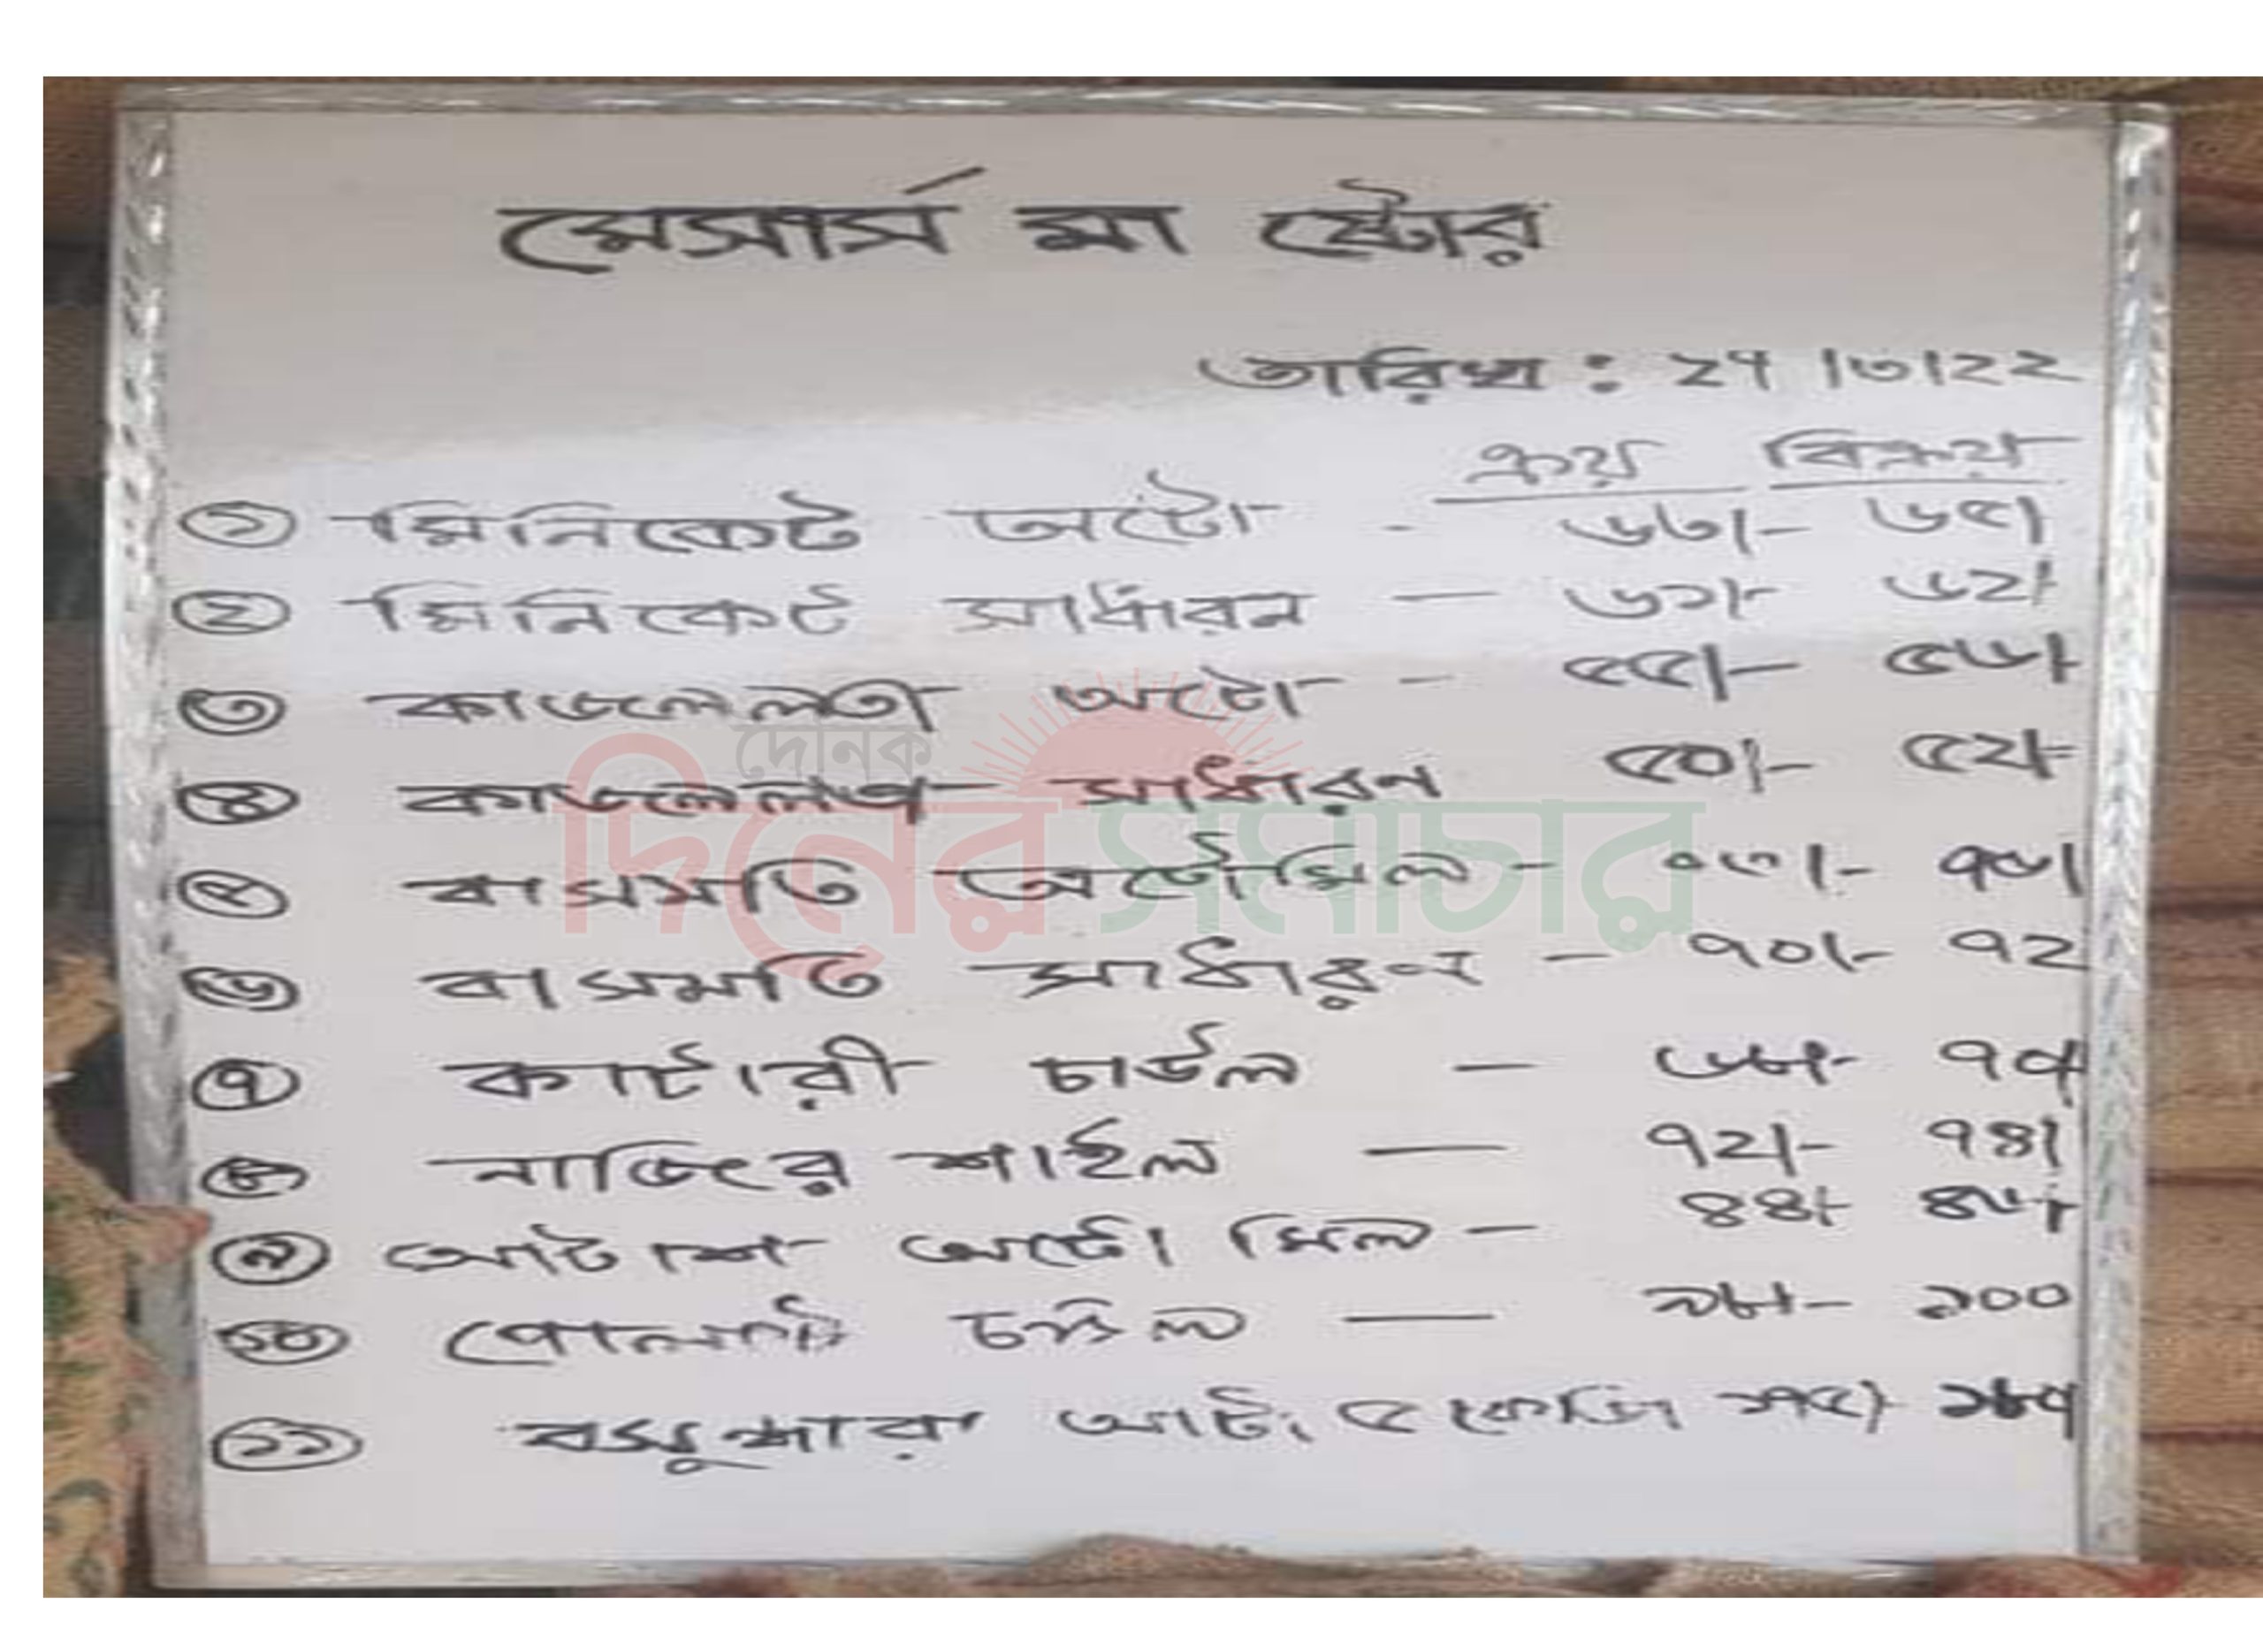 মেসার্স মা ষ্টোর
তারিখ : ২৭/৩/২২
ক্রয় বিক্রয়
১ মিনিকেট অটো - ৬৩/- ৬৫/
২ মিনিকেট সাধারন — ৬১/- ৬২/
৩ কাজলেলতা অটো - ৫৫/- ৫৬/
৪ কাজলেলতা সাধারণ ৫০/- ৫২/
৫ বাসমতি অটোমিল - ৭৬/
৬ বাসমতি সাধারণ — ৭০/- ৭২
৭ কাটারী চাউল — ৬৮/- ৭০/
৮ নাজির শাইল — ৭২/- ৭৪/
৯ আটাশ অটো মিল - ৪৪/- ৪৬/
১০ পোলাও চাউল — ৯৮/- ১০০
১১ বসুন্ধারা আটা ৫ কেজি ১৭৫/
দৈনিক
দিনের সমাচার